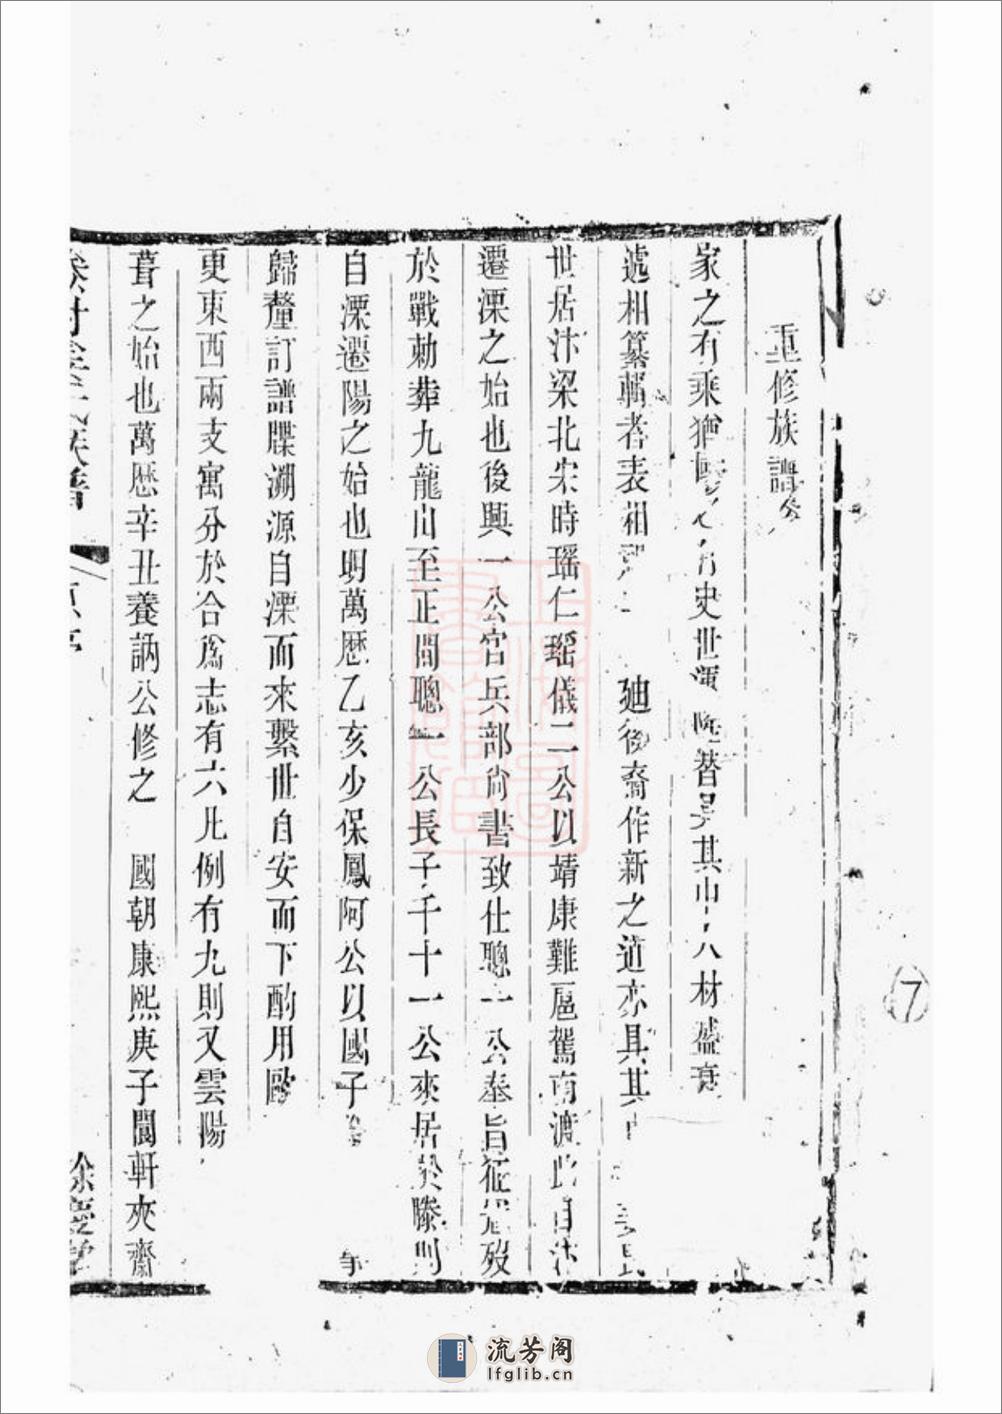 重修族譜
家之有乘猶國之有史世 替 其 材盛衰
遞相纂輯者表祖 廸後裔作新之道亦具其
世居汴梁北宋時瑶仁瑶儀二公以靖康難扈駕南渡此自汴
遷溧之始也後興一公官兵部尚書致仕聰一公奉旨征 歿
於戰勅葬九龍山至正間聰一公長子千十一公來居於滕則
自溧遷陽之始也明萬歷乙亥少保鳳阿公以國子
歸釐訂譜牒溯源自溧而來繫世自安而下酌用歐
更東西兩支寓分於合爲志有六凡例有九則又雲陽
葺之始也萬歷辛丑養訥公修之 國朝康熙庚子閬軒夾齋
氏族譜
餘慶堂
7
流芳阁
lfglib.cn